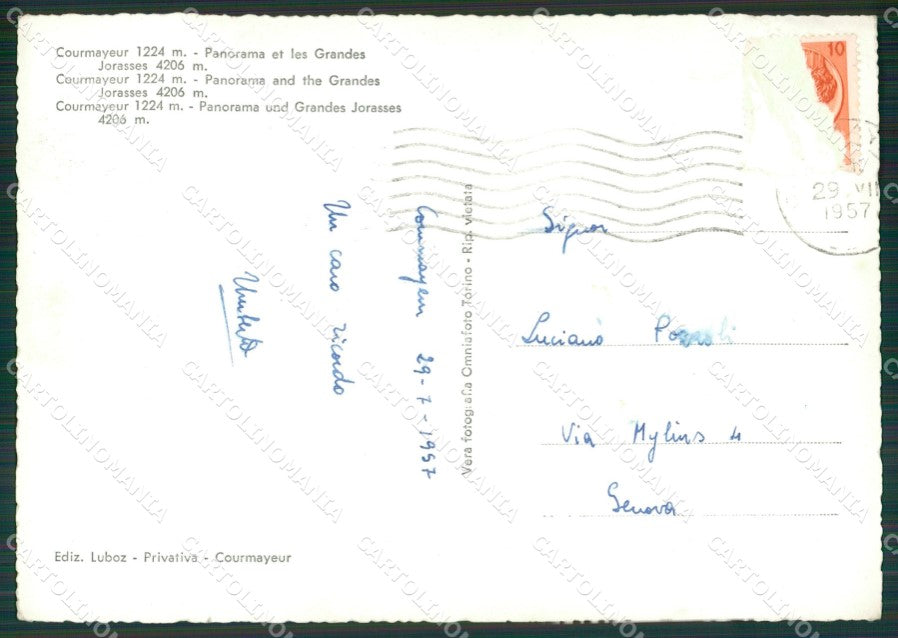 Courmayeur 1224 m. - Panorama et les Grandes
Jorasses 4206 m.
Courmayeur 1224 m. - Panorama and the Grandes
Jorasses 4206 m.
Courmayeur 1224 m. - Panorama und Grandes Jorasses
4206 m.
10
29 VII
1957
Courmayeur 29-7-1957
Un caro ricordo
Umberto
Vera fotografia Omniafoto Torino - Rip. vietata
Signor
Luciano
Via Mylius 4
Genova
Ediz. Luboz - Privativa - Courmayeur
CARTOLINOMANIA